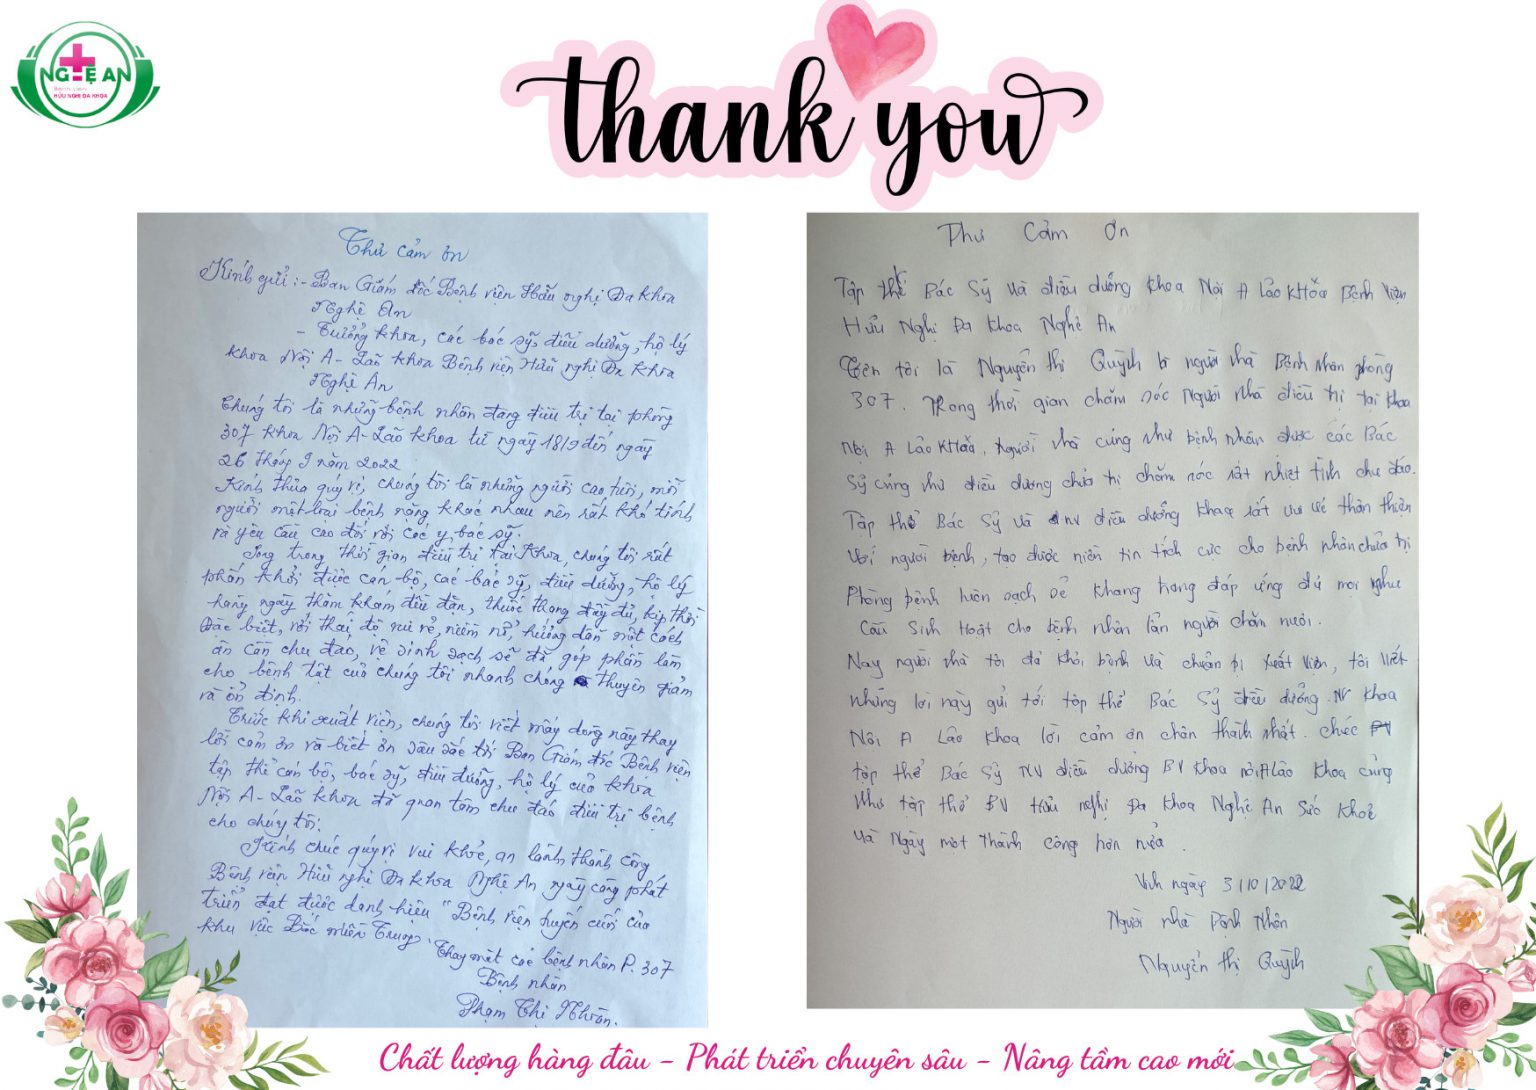 NGHỆ AN
BỆNH VIỆN
HỮU NGHỊ ĐA KHOA
thank you
Thư cảm ơn
Kính gửi: - Ban Giám đốc Bệnh viện Hữu nghị Đa khoa
Nghệ An
- Trưởng khoa, các bác sỹ, điều dưỡng, hộ lý
khoa Nội A - Lão khoa Bệnh viện Hữu nghị Đa khoa
Nghệ An
Chúng tôi là những bệnh nhân đang điều trị tại phòng
307 khoa Nội A - Lão khoa từ ngày 18/9 đến ngày
26 tháng 9 năm 2022
Kính thưa quý vị, chúng tôi là những người cao tuổi, mỗi
người một loại bệnh nặng khác nhau nên rất khó tính
và yêu cầu cao đối với các y, bác sỹ.
Song trong thời gian điều trị tại khoa, chúng tôi rất
phấn khởi được cán bộ, các bác sỹ, điều dưỡng, hộ lý
hàng ngày thăm khám đều đặn, thuốc thang đầy đủ, kịp thời
Đặc biệt, với thái độ vui vẻ, niềm nở, hướng dẫn một cách
ân cần chu đáo, vệ sinh sạch sẽ đã góp phần làm
cho bệnh tật của chúng tôi nhanh chóng thuyên giảm
và ổn định.
Trước khi xuất viện, chúng tôi viết mấy dòng này thay
lời cảm ơn và biết ơn sâu sắc tới Ban Giám đốc Bệnh viện
tập thể cán bộ, bác sỹ, điều dưỡng, hộ lý của khoa
Nội A - Lão khoa đã quan tâm chu đáo điều trị bệnh
cho chúng tôi.
Kính chúc quý vị vui khỏe, an lành thành công
Bệnh viện Hữu nghị Đa khoa Nghệ An ngày càng phát
triển đạt được danh hiệu "Bệnh viện tuyến cuối của
khu vực Bắc miền Trung"
Thay mặt các bệnh nhân P. 307
Bệnh nhân
Phạm Thị Nhân.
Thư Cảm Ơn
Tập thể Bác Sỹ và điều dưỡng khoa Nội A Lão KHoa Bệnh Viện
Hữu Nghị Đa khoa Nghệ An
Tên tôi là Nguyễn thị Quỳnh là người nhà Bệnh nhân phòng
307. Trong thời gian chăm sóc Người nhà điều trị tại khoa
Nội A Lão KHoa, Người nhà cũng như bệnh nhân được các Bác
Sỹ cũng như điều dưỡng chữa trị chăm sóc rất nhiệt tình chu đáo.
Tập thể Bác Sỹ và nv điều dưỡng khoa rất vui vẻ thân thiện
với người bệnh, tạo được niềm tin tích cực cho bệnh nhân chữa trị
Phòng bệnh luôn sạch sẽ khang trang đáp ứng đủ mọi nhu
cầu Sinh Hoạt cho bệnh nhân lẫn người chăm nuôi.
Nay người nhà tôi đã khỏi bệnh và chuẩn bị xuất viện, tôi viết
những lời này gửi tới tập thể Bác Sỹ điều dưỡng. NV khoa
Nội A Lão khoa lời cảm ơn chân thành nhất. chúc
tập thể Bác Sỹ NV điều dưỡng BV khoa nội A Lão khoa cũng
như tập thể BV Hữu nghị Đa khoa Nghệ An Sức Khoẻ
và Ngày một thành công hơn nữa.
Vinh ngày 3/10/2022
Người nhà Bệnh Nhân
Nguyễn thị Quỳnh
Chất lượng hàng đầu - Phát triển chuyên sâu - Nâng tầm cao mới